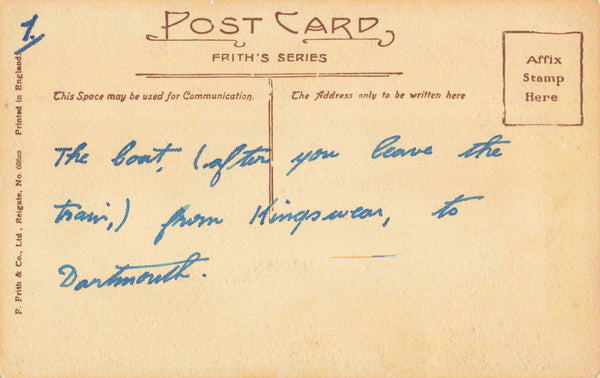 1.
POST CARD
FRITH'S SERIES
This Space may be used for Communication.
The Address only to be written here
Affix
Stamp
Here
The boat, (after you leave the
train,) from Kingswear, to
Dartmouth.
F. Frith & Co., Ltd., Reigate. No. 68622 Printed in England